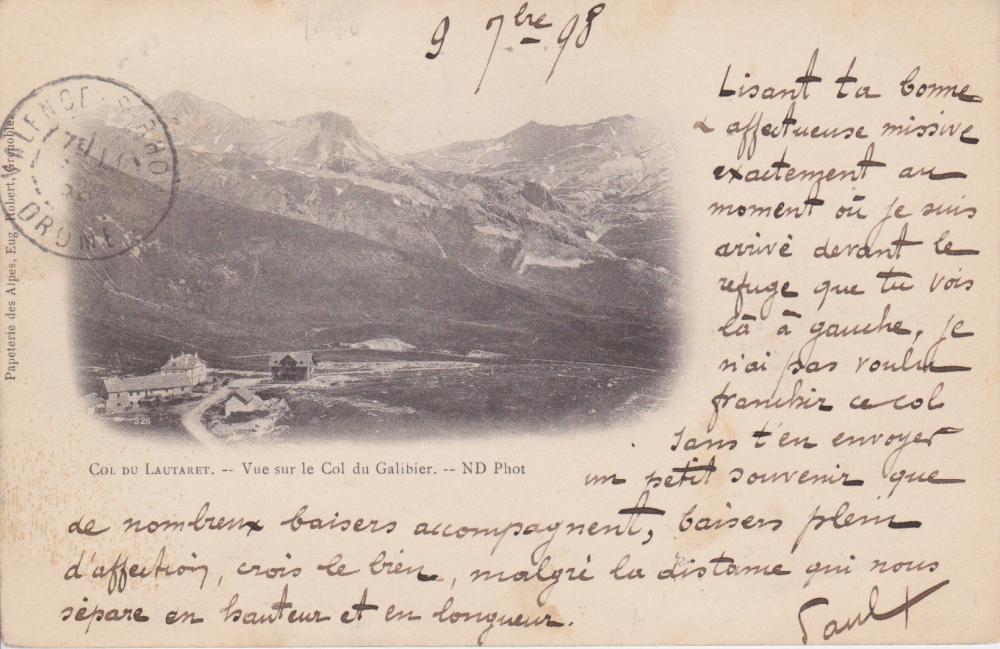 9 7bre 98
VALENCE-S-RHONE
DROME
Papeterie des Alpes, Eug. Robert, Grenoble.
Lisant ta bonne
& affectueuse missive
exactement au
moment où je suis
arrivé devant le
refuge que tu vois
là à gauche, je
n'ai pas voulu
franchir ce col
sans t'en envoyer
un petit souvenir que
de nombreux baisers accompagnent, baisers plein
d'affection, crois le bien, malgré la distance qui nous
sépare en hauteur et en longueur.
Paul
325
COL DU LAUTARET. -- Vue sur le Col du Galibier. -- ND Phot